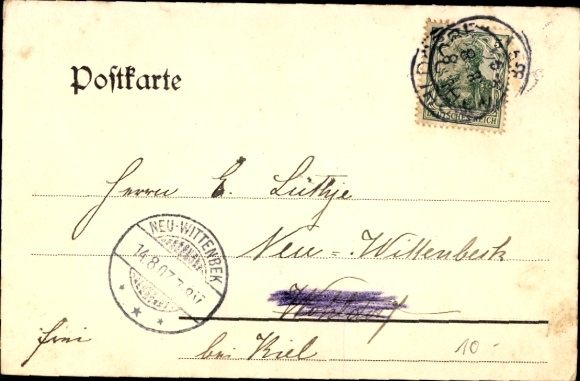 Postkarte
DEUTSCHES REICH
Herrn E. Lüthje
Neu=Wittenbeck
NEU-WITTENBEK
14.8.07
frei
bei Kiel
10-